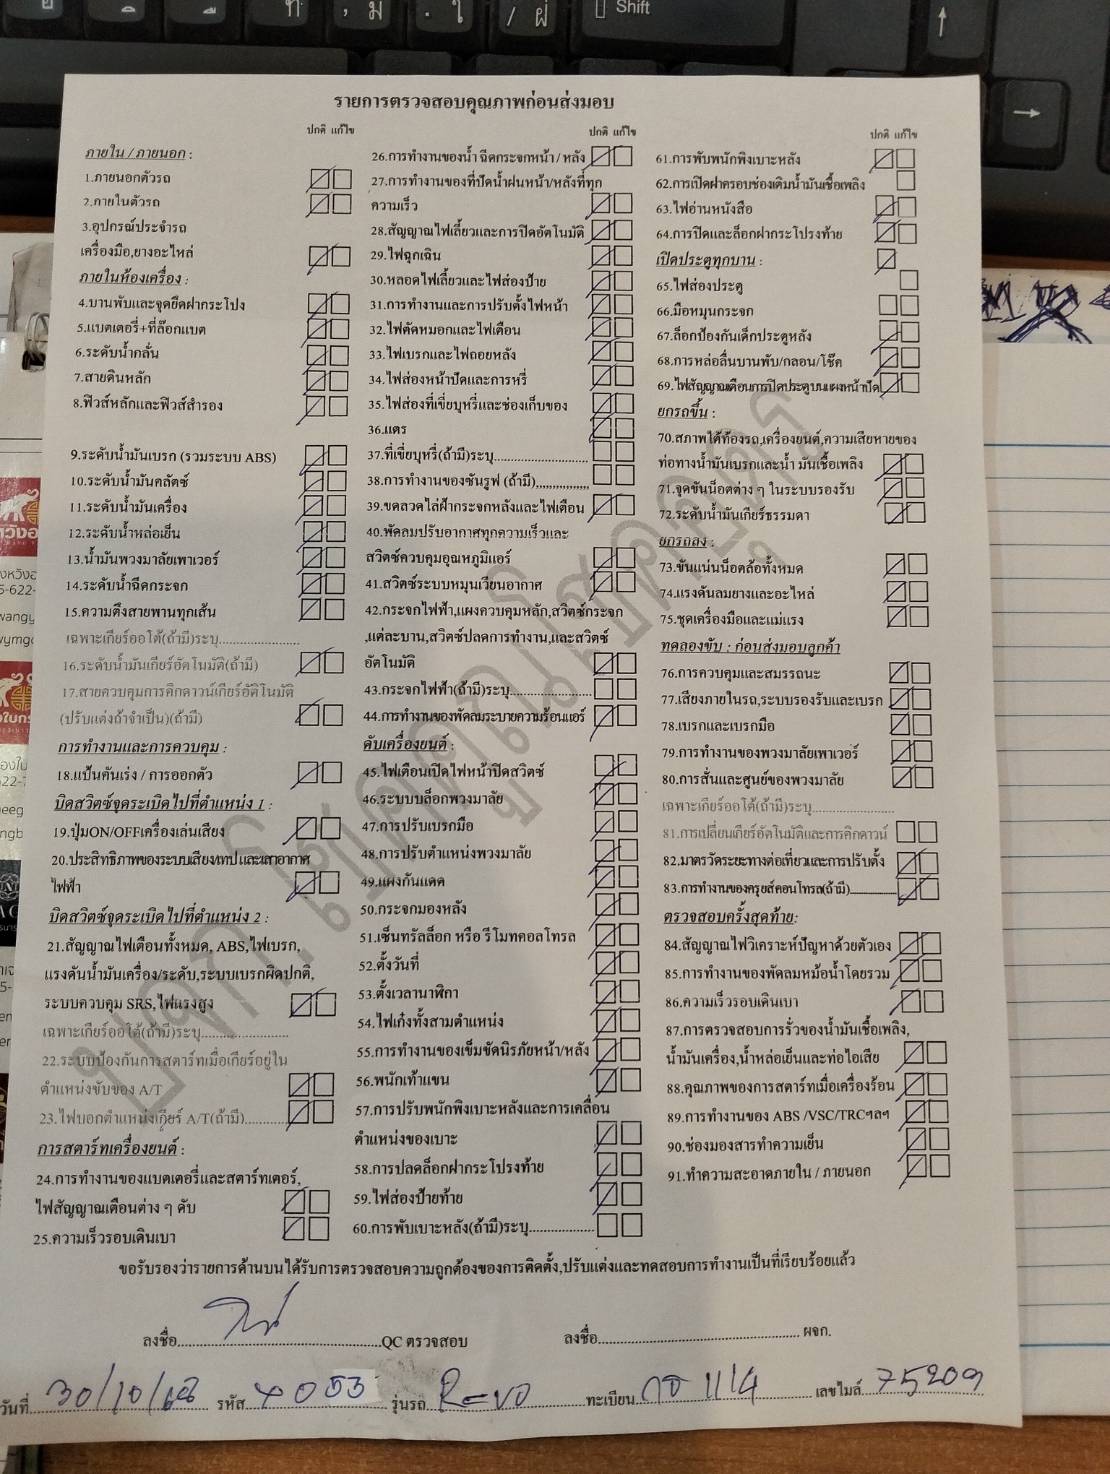 Shift
รายการตรวจสอบคุณภาพก่อนส่งมอบ
ปกติ แก้ไข
ภายใน / ภายนอก :
1.ภายนอกตัวรถ
2.ภายในตัวรถ
3.อุปกรณ์ประจำรถ
เครื่องมือ,ยางอะไหล่
ภายในห้องเครื่อง :
4.บานพับและจุดยึดฝากระโปง
5.แบตเตอรี่+ที่ล๊อกแบต
6.ระดับน้ำกลั่น
7.สายดินหลัก
8.ฟิวส์หลักและฟิวส์สำรอง
9.ระดับน้ำมันเบรก (รวมระบบ ABS)
10.ระดับน้ำมันคลัตซ์
11.ระดับน้ำมันเครื่อง
12.ระดับน้ำหล่อเย็น
13.น้ำมันพวงมาลัยพาเวอร์
14.ระดับน้ำฉีดกระจก
15.ความตึงสายพานทุกเส้น
เฉพาะเกียร์ออโต้(ถ้ามี)ระบุ....................
16.ระดับน้ำมันเกียร์อัตโนมัติ(ถ้ามี)
17.สายควบคุมการคิกดาวน์เกียร์อัตโนมัติ
(ปรับแต่งถ้าจำเป็น)(ถ้ามี)
การทำงานและการควบคุม :
18.แป้นคันเร่ง / การออกตัว
บิดสวิตซ์จุดระเบิดไปที่ตำแหน่ง 1 :
19.ปุ่มON/OFFเครื่องเล่นเสียง
20.ประสิทธิภาพของระบบเสียงเทป และเสาอากาศ
ไฟฟ้า
บิดสวิตซ์จุดระเบิดไปที่ตำแหน่ง 2 :
21.สัญญาณไฟเตือนทั้งหมด, ABS,ไฟเบรก,
แรงดันน้ำมันเครื่อง/ระดับ,ระบบเบรกผิดปกติ,
ระบบควบคุม SRS,ไฟแรงสูง
เฉพาะเกียร์ออโต้(ถ้ามี)ระบุ......................
22.ระบบป้องกันการสตาร์ทเมื่อเกียร์อยู่ใน
ตำแหน่งขับของ A/T
23.ไฟบอกตำแหน่งเกียร์ A/T(ถ้ามี)..........
การสตาร์ทเครื่องยนต์ :
24.การทำงานของแบตเตอรี่และสตาร์ทเตอร์,
ไฟสัญญาณเตือนต่าง ๆ ดับ
25.ความเร็วรอบเดินเบา
ปกติ แก้ไข
26.การทำงานของน้ำ ฉีดกระจกหน้า / หลัง
27.การทำงานของที่ปัดน้ำฝนหน้า/หลังที่ทุก
ความเร็ว
28.สัญญาณไฟเลี้ยวและการปิดอัตโนมัติ
29.ไฟฉุกเฉิน
30.หลอดไฟเลี้ยวและไฟส่องป้าย
31.การทำงานและการปรับตั้งไฟหน้า
32.ไฟตัดหมอกและไฟเตือน
33.ไฟเบรกและไฟถอยหลัง
34.ไฟส่องหน้าปัดและการหรี่
35.ไฟส่องที่เขี่ยบุหรี่และช่องเก็บของ
36.แตร
37.ที่เขี่ยบุหรี่(ถ้ามี)ระบุ........................
38.การทำงานของซันรูฟ (ถ้ามี)................
39.ขดลวดไล่ฝ้ากระจกหลังและไฟเตือน
40.พัดลมปรับอากาศทุกความเร็วและ
สวิตซ์ควบคุมอุณหภูมิแอร์
41.สวิตซ์ระบบหมุนเวียนอากาศ
42.กระจกไฟฟ้า,แผงควบคุมหลัก,สวิตซ์กระจก
,แต่ละบาน,สวิตซ์ปลดการทำงาน,และสวิตซ์
อัตโนมัติ
43.กระจกไฟฟ้า(ถ้ามี)ระบุ.....................
44.การทำงานของพัดลมระบายความร้อนแอร์
ดับเครื่องยนต์ :
45.ไฟเตือนเปิดไฟหน้าปิดสวิตซ์
46.ระบบบล็อกพวงมาลัย
47.การปรับเบรกมือ
48.การปรับตำแหน่งพวงมาลัย
49.แผงกันแดด
50.กระจกมองหลัง
51.เซ็นทรัลล็อก หรือ รีโมทคอลโทรล
52.ตั้งวันที่
53.ตั้งเวลานาฬิกา
54.ไฟเก๋งทั้งสามตำแหน่ง
55.การทำงานของเข็มขัดนิรภัยหน้า/หลัง
56.พนักเท้าแขน
57.การปรับพนักพิงเบาะหลังและการเคลื่อน
ตำแหน่งของเบาะ
58.การปลดล็อกฝากระโปรงท้าย
59.ไฟส่องป้ายท้าย
60.การพับเบาะหลัง(ถ้ามี)ระบุ................
ปกติ แก้ไข
61.การพับพนักพิงเบาะหลัง
62.การเปิดฝาครอบช่องเติมน้ำมันเชื้อเพลิง
63.ไฟอ่านหนังสือ
64.การปิดและล็อกฝากระโปรงท้าย
เปิดประตูทุกบาน :
65.ไฟส่องประตู
66.มือหมุนกระจก
67.ล็อกป้องกันเด็กประตูหลัง
68.การหล่อลื่นบานพับ/กลอน/โช๊ค
69.ไฟสัญญาณเตือนการปิดประตูบนแผงหน้าปัด
ยกรถขึ้น :
70.สภาพใต้ท้องรถ,เครื่องยนต์,ความเสียหายของ
ท่อทางน้ำมันเบรกและน้ำ มันเชื้อเพลิง
71.จุดขันน็อตต่าง ๆ ในระบบรองรับ
72.ระดับน้ำมันเกียร์ธรรมดา
ยกรถลง :
73.ขันแน่นน็อตล้อทั้งหมด
74.แรงดันลมยางและอะไหล่
75.ชุดเครื่องมือและแม่แรง
ทดลองขับ : ก่อนส่งมอบลูกค้า
76.การควบคุมและสมรรถนะ
77.เสียงภายในรถ,ระบบรองรับและเบรก
78.เบรกและเบรกมือ
79.การทำงานของพวงมาลัยเพาเวอร์
80.การสั่นและศูนย์ของพวงมาลัย
เฉพาะเกียร์ออโต้(ถ้ามี)ระบุ....................
81.การเปลี่ยนเกียร์อัตโนมัติและการคิกดาวน์
82.มาตรวัดระยะทางต่อเที่ยวและการปรับตั้ง
83.การทำงานของครุยส์คอนโทรล(ถ้ามี)..............
ตรวจสอบครั้งสุดท้าย:
84.สัญญาณไฟวิเคราะห์ปัญหาด้วยตัวเอง
85.การทำงานของพัดลมหม้อน้ำโดยรวม
86.ความเร็วรอบเดินเบา
87.การตรวจสอบการรั่วของน้ำมันเชื้อเพลิง,
น้ำมันเครื่อง,น้ำหล่อเย็นและท่อไอเสีย
88.คุณภาพของการสตาร์ทเมื่อเครื่องร้อน
89.การทำงานของ ABS /VSC/TRCฯลฯ
90.ช่องมองสารทำความเย็น
91.ทำความสะอาดภายใน / ภายนอก
บจก.โชคคูณโชคคูตร
ขอรับรองว่ารายการด้านบนได้รับการตรวจสอบความถูกต้องของการติดตั้ง,ปรับแต่งและทดสอบการทำงานเป็นที่เรียบร้อยแล้ว
ลงชื่อ..................................QC ตรวจสอบ
ลงชื่อ.................................. ผจก.
วันที่ 30/10/68 รหัส 40 53 รุ่นรถ Revo ทะเบียน 1114 เลขไมล์ 75209